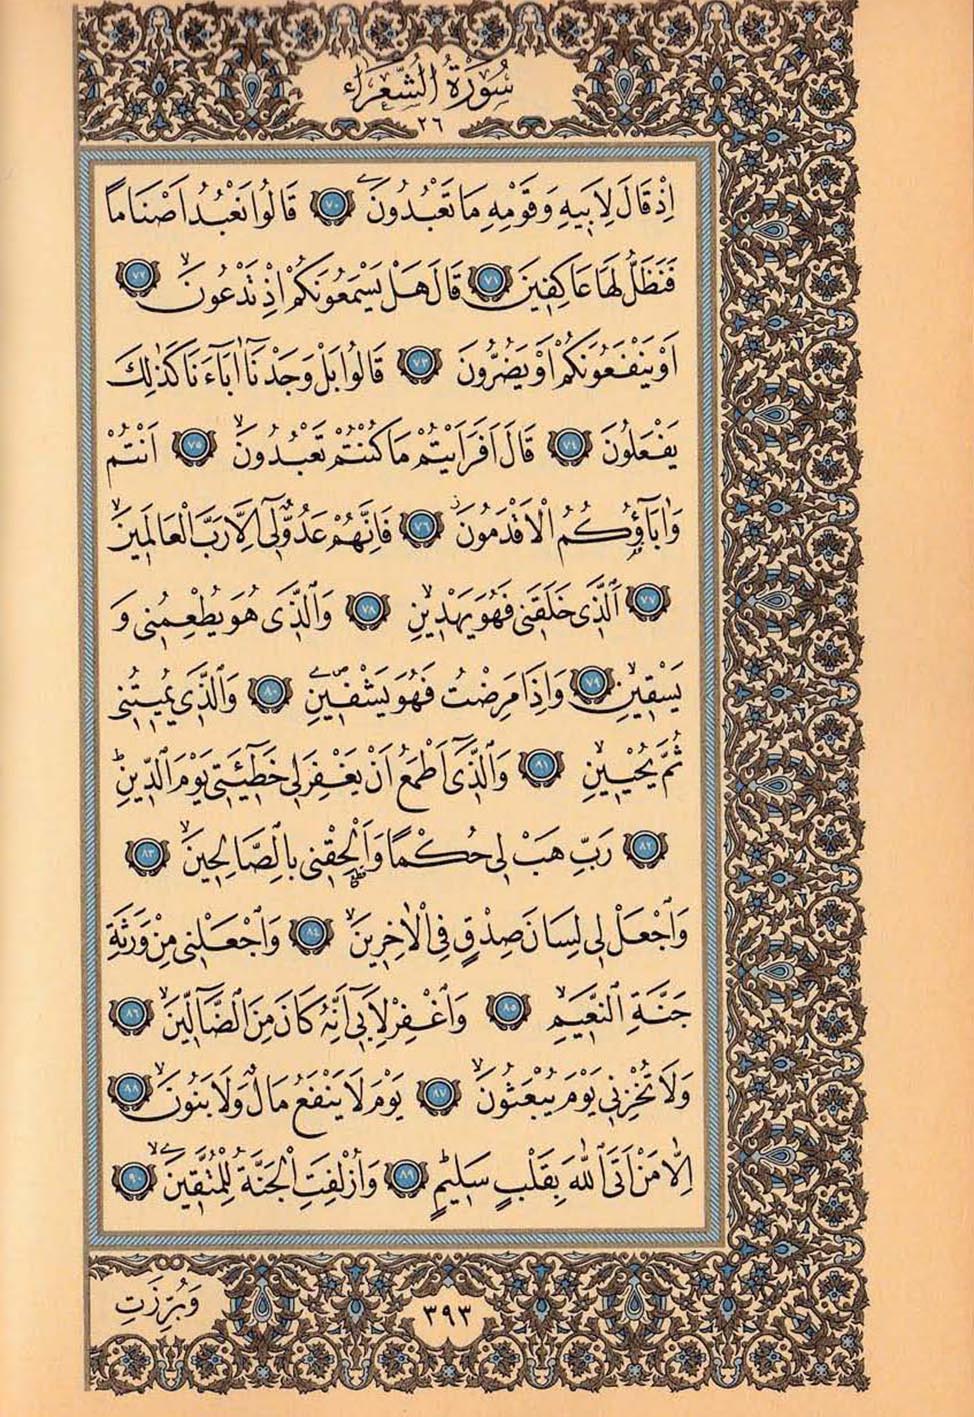 سُورَةُ الشُّعَرَاء
٢٦
اِذْ قَالَ لِاَبٖيهِ وَقَوْمِهٖ مَا تَعْبُدُونَ ٧٠ قَالُوا نَعْبُدُ اَصْنَامًا
فَنَظَلُّ لَهَا عَاكِفٖينَ ٧١ قَالَ هَلْ يَسْمَعُونَكُمْ اِذْ تَدْعُونَۙ ٧٢
اَوْ يَنْفَعُونَكُمْ اَوْ يَضُرُّونَ ٧٣ قَالُوا بَلْ وَجَدْنَٓا اٰبَٓاءَنَا كَذٰلِكَ
يَفْعَلُونَ ٧٤ قَالَ اَفَرَاَيْتُمْ مَا كُنْتُمْ تَعْبُدُونَۙ ٧٥ اَنْتُمْ
وَاٰبَٓاؤُ۬كُمُ الْاَقْدَمُونَۘ ٧٦ فَاِنَّهُمْ عَدُوٌّ لٖٓى اِلَّا رَبَّ الْعَالَمٖينَۙ
٧٧ اَلَّذٖى خَلَقَنٖى فَهُوَ يَهْدٖينِۙ ٧٨ وَالَّذٖى هُوَ يُطْعِمُنٖى وَ
يَسْقٖينِۙ ٧٩ وَاِذَا مَرِضْتُ فَهُوَ يَشْفٖينِۖ ٨٠ وَالَّذٖى يُمٖيتُنٖى
ثُمَّ يُحْيٖينِۙ ٨١ وَالَّذٖٓى اَطْمَعُ اَنْ يَغْفِرَ لٖى خَطٖٓيـَٔتٖى يَوْمَ الدّٖينِؕ
٨٢ رَبِّ هَبْ لٖى حُكْمًا وَاَلْحِقْنٖى بِالصَّالِحٖينَۙ ٨٣
وَاجْعَلْ لٖى لِسَانَ صِدْقٍ فِى الْاٰخِرٖينَۙ ٨٤ وَاجْعَلْنٖى مِنْ وَرَثَةِ
جَنَّةِ النَّعٖيمِۙ ٨٥ وَاغْفِرْ لِاَبٖٓى اِنَّهُ كَانَ مِنَ الضَّٓالّٖينَۙ ٨٦
وَلَا تُخْزِنٖى يَوْمَ يُبْعَثُونَۙ ٨٧ يَوْمَ لَا يَنْفَعُ مَالٌ وَلَا بَنُونَۙ ٨٨
اِلَّا مَنْ اَتَى اللّٰهَ بِقَلْبٍ سَلٖيمٍؕ ٨٩ وَاُزْلِفَتِ الْجَنَّةُ لِلْمُتَّقٖينَۙ ٩٠
وَبُرِّزَتِ
٣٩٣